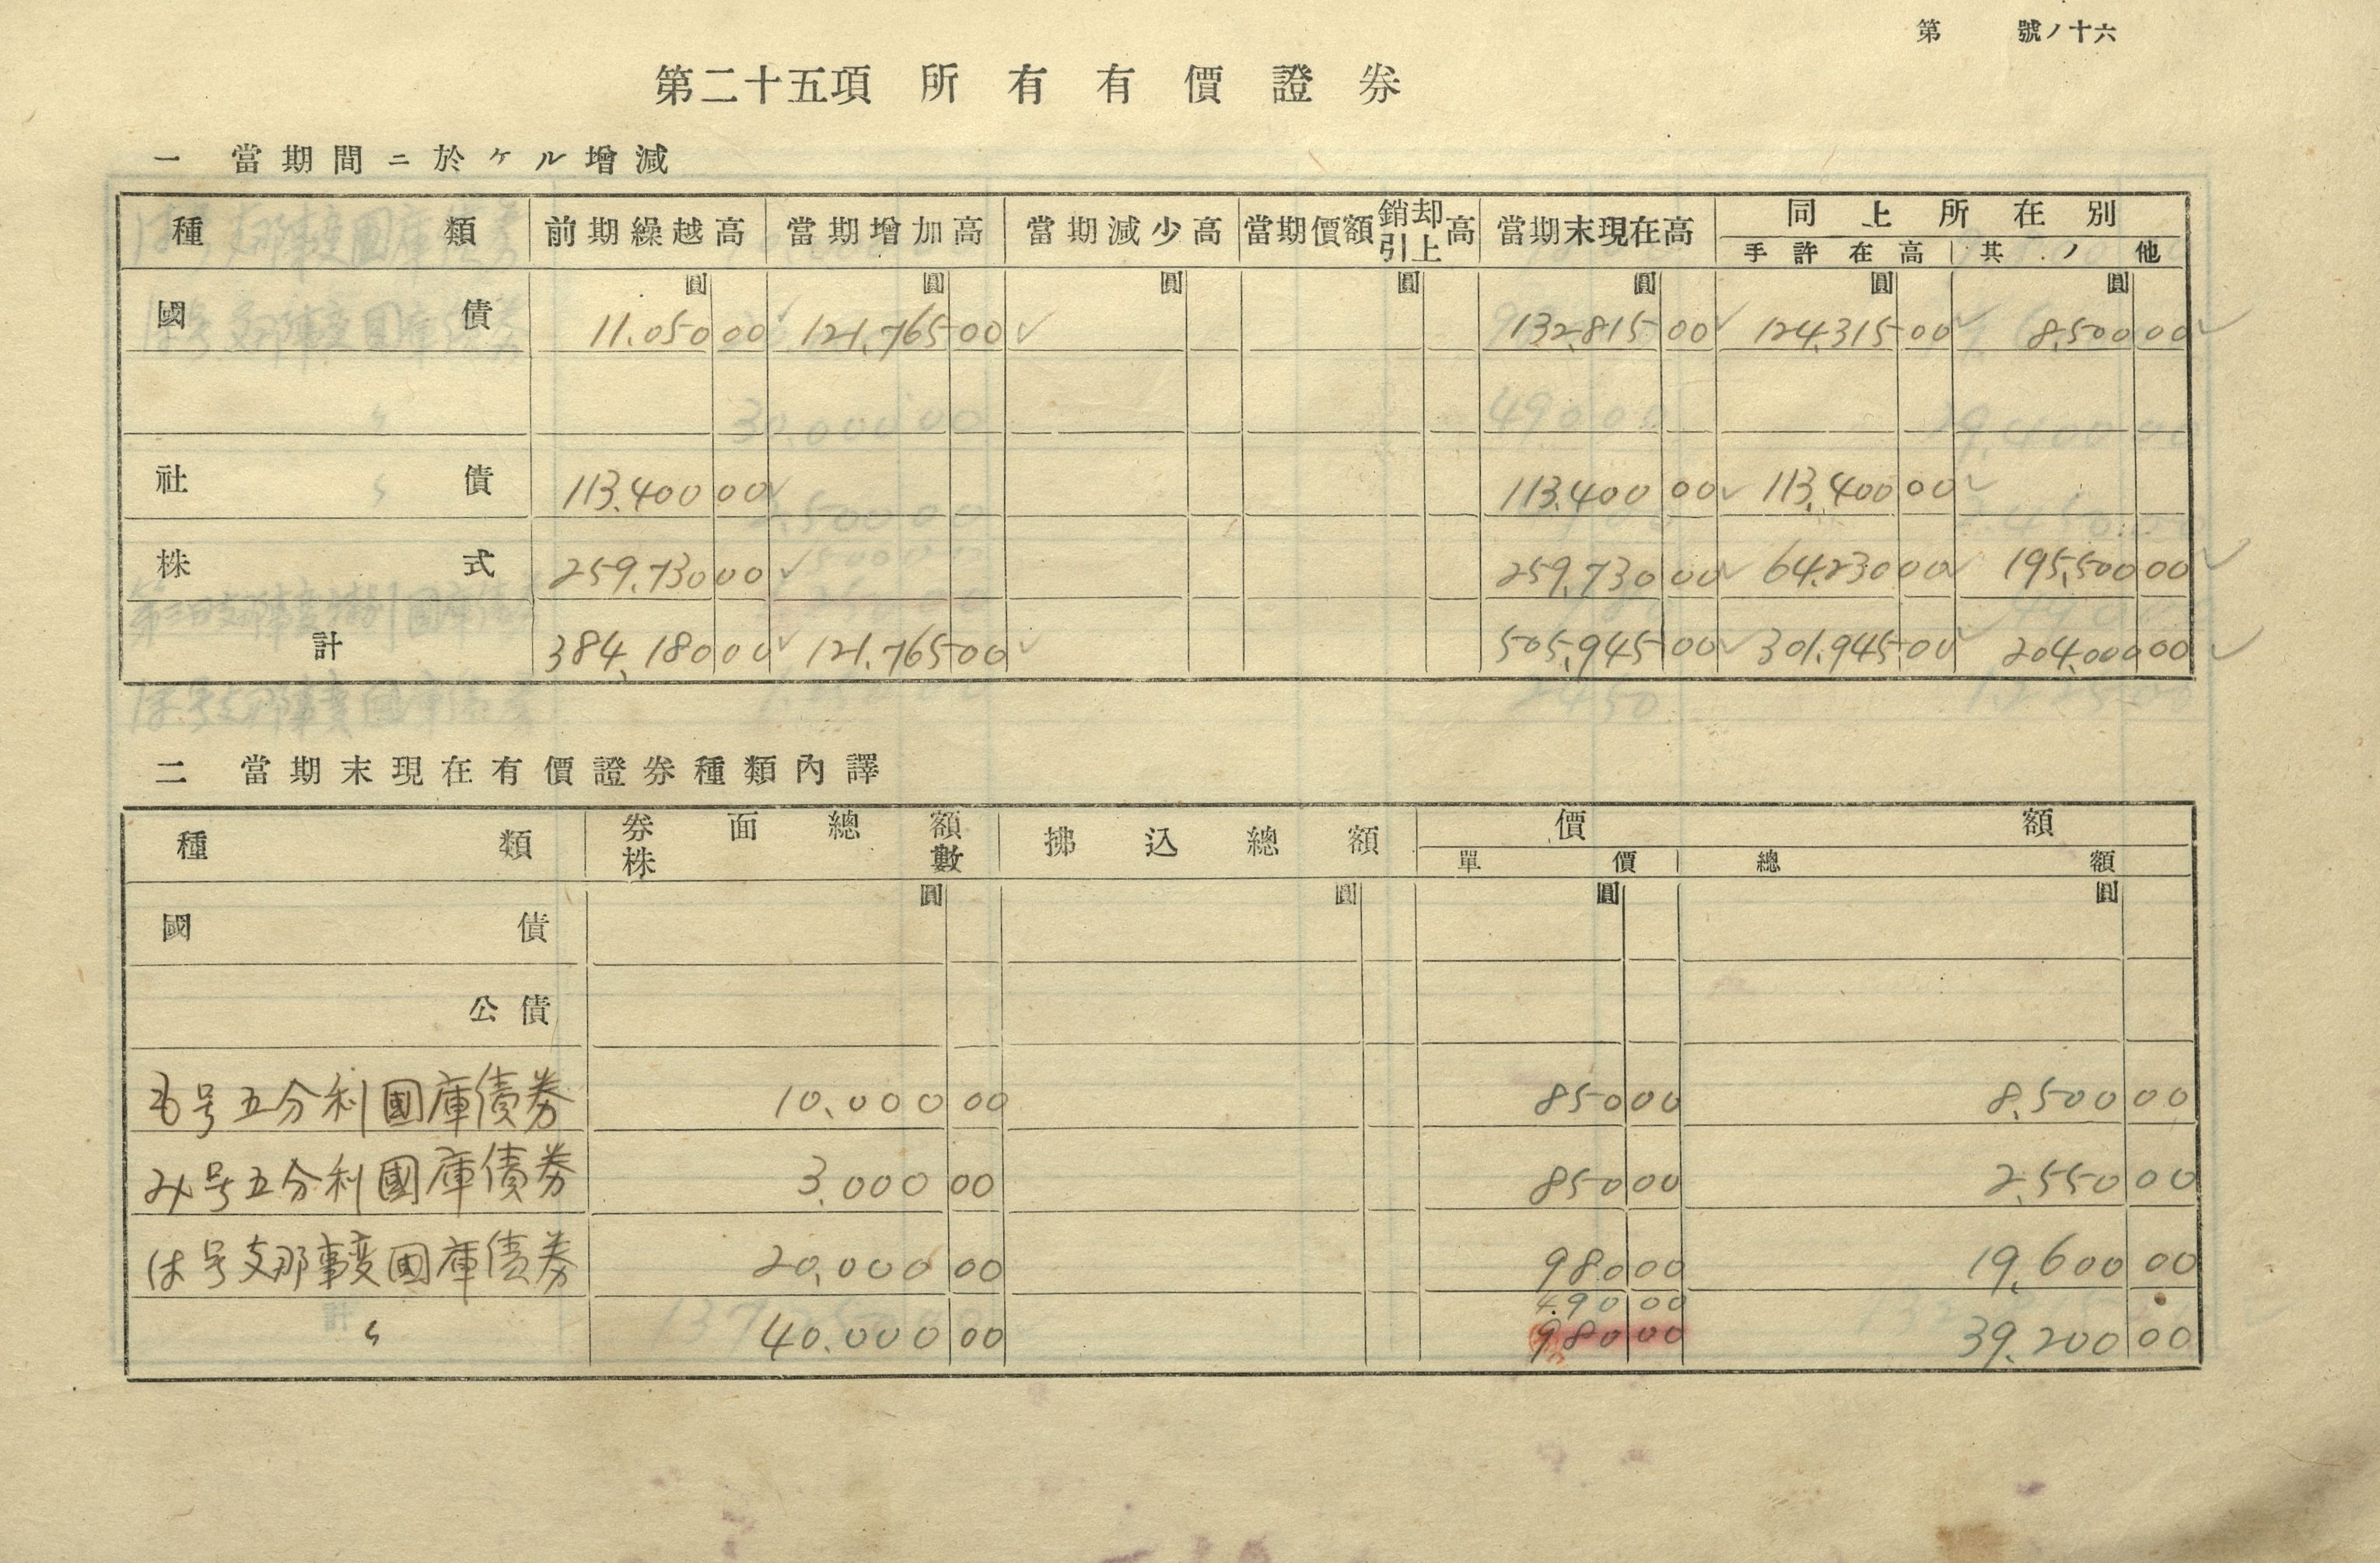 第 號ノ十六
第二十五項 所有有價證券
一 當期間ニ於ケル增減
種類 前期繰越高 當期增加高 當期減少高 當期價額銷却引上高 當期末現在高 同上所在別
手許在高 其ノ他
圓 圓 圓 圓 圓 圓 圓
國債 11.050 00 121.765 00 132.815 00 124.315 00 8.500 00
社債 113.400 00 113.400 00 113.400 00
株式 259.730 00 259.730 00 64.230 00 195.500 00
計 384.180 00 121.765 00 505.945 00 301.945 00 204.000 00
二 當期末現在有價證券種類內譯
種類 券面總額 株數 拂込總額 價額
單價 總額
圓 圓 圓 圓
國債
公債
も号五分利國庫債券 10.000 00 850 00 8.500 00
み号五分利國庫債券 3.000 00 850 00 2.550 00
は号支那事変國庫債券 20.000 00 980 00 19.600 00
490 00
〃 40.000 00 980 00 39.200 00